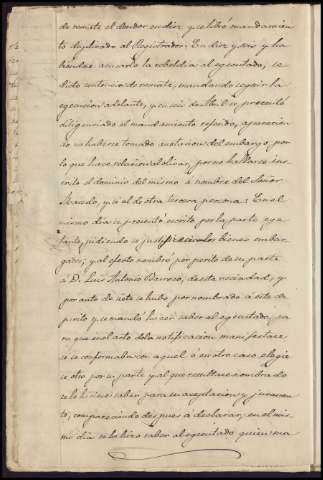 de remate el deudor en diez y se libró mandamien
to duplicado al Registrador: En diez y seis y ha
biéndose acusado la rebeldía al ejecutado, se
dictó sentencia de remate, mandando seguir la
ejecucion adelante, y en seis de Abril se presentó
diligenciado el mandamiento referido, aparecien
do no haberse tomado anotacion del embargo, por
lo que hace relacion al olivar, por no hallarse ins
crito el dominio del mismo á nombre del Señor
Acevedo, y sí al de otra tercera persona: En el
mismo dia se presentó escrito por la parte eje
tante, pidiendo se justipreciaran los bienes embar
gados, y al efecto nombró por perito de su parte
á D. Luis Antonio Berroco, de esta vecindad, y
por auto de vista se hubo por nombrado á este
perito y se mandó hacer saber al ejecutado, pa
ra que en el acto de la notificacion manifestase
si se conformaba con aquel ó en otro caso elegie
se otro por su parte y al que resultare nombrado
se le hiciese saber para su aceptacion y juramen
to, compareciendo despues á declarar, en el mis
mo dia se le hizo saber al ejecutado quien ma